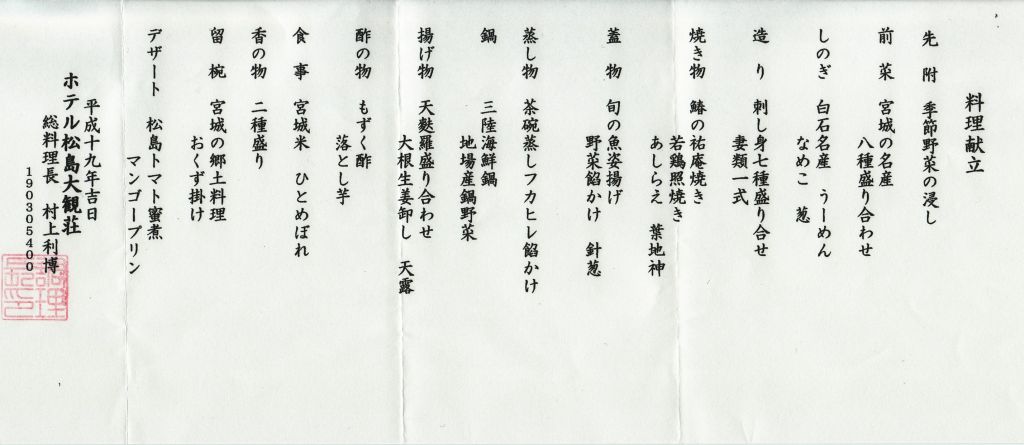 料理献立
先附 季節野菜の浸し
前菜 宮城の名産
八種盛り合わせ
しのぎ 白石名産 うーめん
なめこ 葱
造り 刺し身七種盛り合せ
妻類一式
焼き物 鰆の祐庵焼き
若鶏照焼き
あしらえ 葉地神
蓋物 旬の魚姿揚げ
野菜餡かけ 針葱
蒸し物 茶碗蒸しフカヒレ餡かけ
鍋 三陸海鮮鍋
地場産鍋野菜
揚げ物 天麩羅盛り合わせ
大根生姜卸し 天露
酢の物 もずく酢
落とし芋
食事 宮城米 ひとめぼれ
香の物 二種盛り
留椀 宮城の郷土料理
おくず掛け
デザート 松島トマト蜜煮
マンゴープリン
平成十九年吉日
ホテル松島大観荘
総料理長 村上利博
190305400